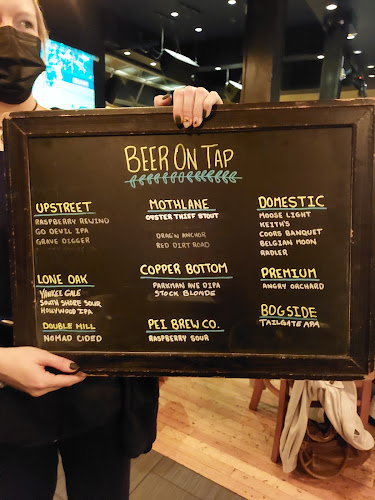 BEER ON TAP
UPSTREET
RASPBERRY REWIND
GO DEVIL IPA
GRAVE DIGGER
LONE OAK
YANKEE GALE
SOUTH SHORE SOUR
HOLLYWOOD IPA
DOUBLE HILL
NOMAD CIDED
MOTHLANE
OYSTER THIEF STOUT
DRAG'N ANCHOR
RED DIRT ROAD
COPPER BOTTOM
PARKMAN AVE DIPA
STOCK BLONDE
PEI BREW CO.
RASPBERRY SOUR
DOMESTIC
MOOSE LIGHT
KEITH'S
COORS BANQUET
BELGIAN MOON
RADLER
PREMIUM
ANGRY ORCHARD
BOGSIDE
TAILGATE APA